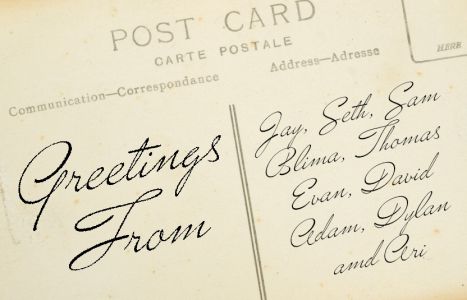 POST CARD
CARTE POSTALE
Communication—Correspondance
Address—Adresse
HERE
Greetings
From
Jay, Seth, Sam
Blima, Thomas
Evan, David
Adam, Dylan
amd Ceri